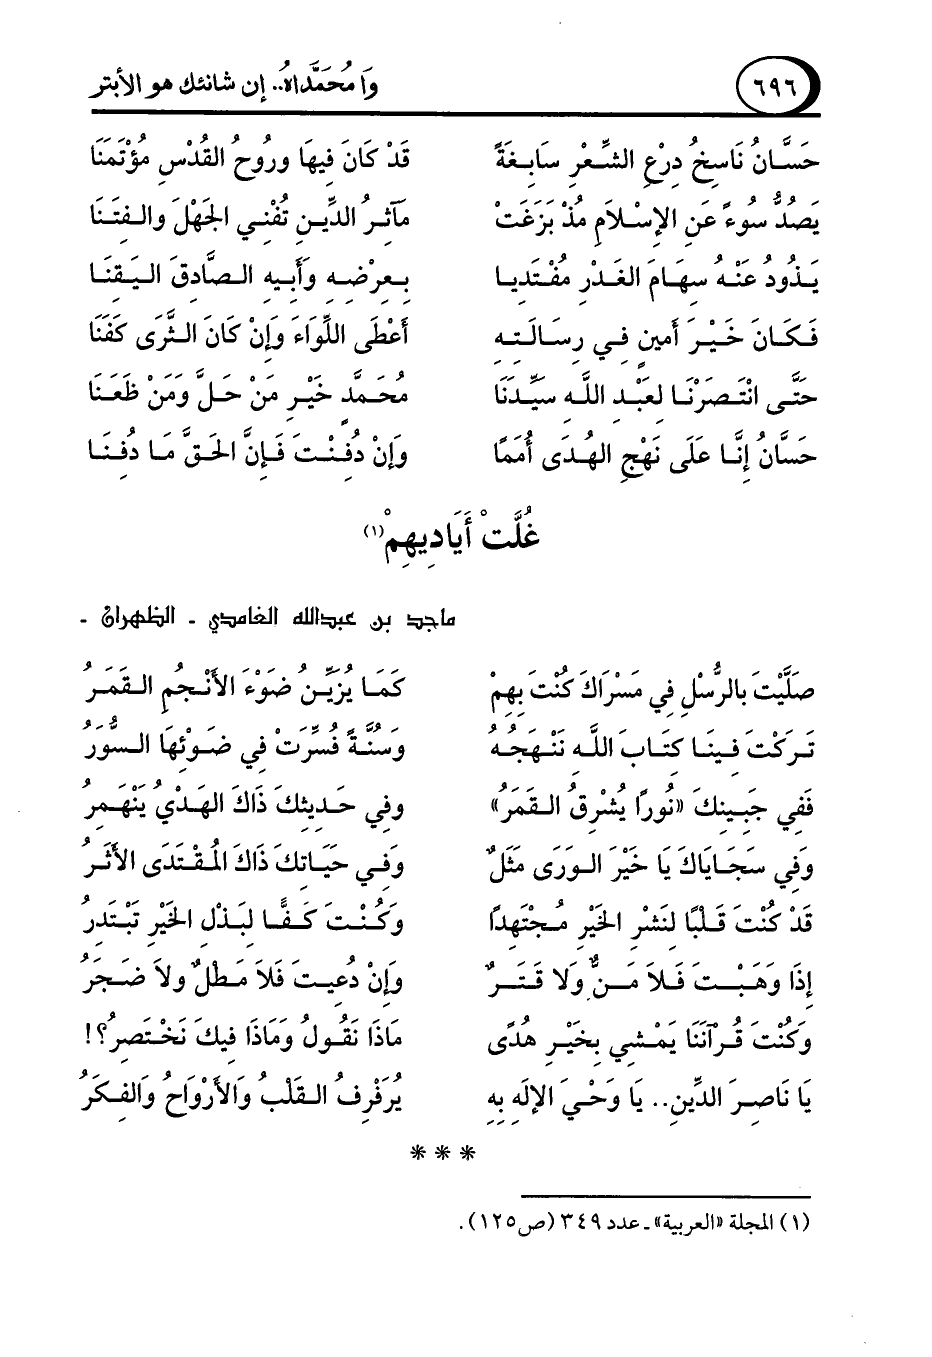 ٦٩٦ وَا مُحَمَّدَاهُ.. إن شانئك هو الأبتر
حَسَّانُ نَاسِخُ دِرْعِ الشِّعْرِ سَابِغَةً قَدْ كَانَ فِيهَا ورُوحُ القُدْسِ مؤْتَمَنَا
يَصُدُّ سُوءً عَنِ الإِسْلَامِ مُذْ بَزَغَتْ مَآثِرُ الدِّينِ تُفْنِي الجَهْلَ والفِتَنَا
يَذُودُ عَنْهُ سِهَامَ الغَدْرِ مُفْتَدِيا بِعِرْضِهِ وَأَبِيهِ الصَّادِقَ اليَقِنَا
فَكَانَ خَيْرَ أَمِينٍ فِي رِسَالَتِهِ أَعْطَى اللِّوَاءَ وَإِنْ كَانَ الثَّرَى كَفَنَا
حَتَّى انْتَصَرْنَا لِعَبْدِ اللَّهِ سَيِّدَنَا مُحَمَّدٍ خَيْرِ مَنْ حَلَّ وَمَنْ ظَعَنَا
حَسَانُ إِنَّا عَلَى نَهْجِ الهُدَى أُمَمًا وَإِنْ دُفِنْتَ فَإِنَّ الحَقَّ مَا دُفِنَا
غُلَّتْ أَيَادِيهِمْ(١)
ماجد بن عبدالله الغامدي ـ الظهران ـ
صَلَّيْتَ بِالرُّسْلِ فِي مَسْرَاكَ كُنْتَ بِهِمْ كَمَا يُزَيِّنُ ضَوْءَ الأَنْجُمِ القَمَرُ
تَرَكْتَ فِينَا كِتَابَ اللَّهِ نَنْهَجُهُ وَسُنَّةً فُسِّرَتْ فِي ضَوْئِهَا السُّوَرُ
فَفِي جَبِينِكَ «نُورًا يُشْرِقُ القَمَرُ» وفِي حَدِيثِكَ ذَاكَ الهَدْيُ يَنْهَمِرُ
وَفِي سَجَايَاكَ يَا خَيْرَ الوَرَى مَثَلٌ وَفِي حَيَاتِكَ ذَاكَ المُقْتَدَى الأَثَرُ
قَدْ كُنْتَ قَلْبًا لِنَشْرِ الخَيْرِ مُجْتَهِدًا وَكُنْتَ كَفًّا لِبَذْلِ الخَيْرِ تَبْتَدِرُ
إِذَا وَهَبْتَ فَلَا مَنٌّ وَلَا قَتَرٌ وَإِنْ دُعِيتَ فَلَا مَطْلٌ ولَا ضَجَرُ
وَكُنْتَ قُرْآنَنَا يَمْشِي بِخَيْرِ هُدًى مَاذَا نَقُولُ وَمَاذَا فِيكَ نَخْتَصِرُ؟!
يَا نَاصِرَ الدِّينِ.. يَا وَحْيَ الإِلَهِ بِهِ يُرَفْرِفُ القَلْبُ وَالأَرْوَاحُ وَالفِكَرُ
* * *
(١) المجلة «العربية» ـ عدد ٣٤٩ (ص١٢٥).